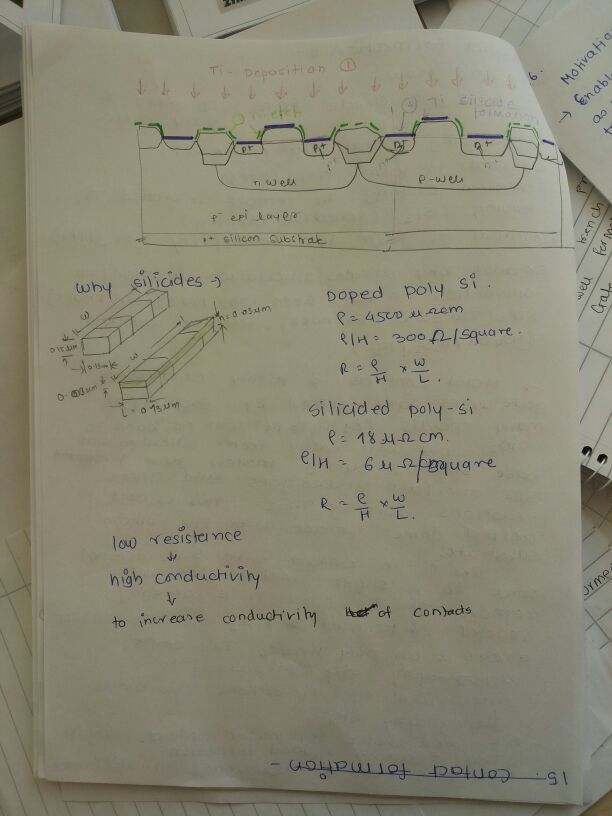 Ti- Deposition ①
② Ti silicide
formation
etch
p+
p+
n+
n+
n well
p-well
p- epi layer
p+ silicon substrate
why silicides →
W
W
0.15μm
h = 0.03μm
L = 0.13μm
Doped poly si.
ρ = 4500 μΩcm
ρ/H = 300 Ω/square.
R = ρ/H × W/L.
silicided poly-si
ρ = 18 μΩ cm.
ρ/H = 6 μΩ/square
R = ρ/H × W/L.
low resistance
↓
high conductivity
↓
to increase conductivity of contacts
15. contact formation -
6. Motivatio
→ Enable
as
well
trench
Gate